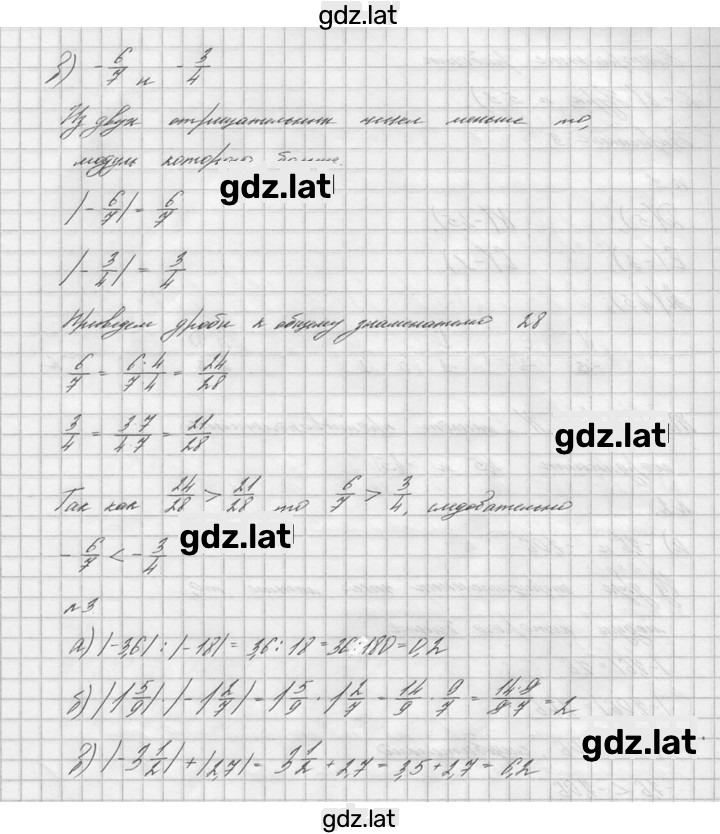 gdz.lat
в) -6/7 и -3/4
Из двух отрицательных чисел меньше то,
модуль которого больше.
gdz.lat
|-6/7| = 6/7
|-3/4| = 3/4
Приведем дроби к общему знаменателю 28
6/7 = 6·4/7·4 = 24/28
3/4 = 3·7/4·7 = 21/28
gdz.lat
Так как 24/28 > 21/28 то 6/7 > 3/4, следовательно
gdz.lat
-6/7 < -3/4
№3
а) |-3,6| : |-18| = 3,6 : 18 = 36 : 180 = 0,2
б) |1 5/9| · |-1 2/7| = 1 5/9 · 1 2/7 = 14/9 · 9/7 = 14·9/9·7 = 2
gdz.lat
в) |-3 1/2| + |2,7| = 3 1/2 + 2,7 = 3,5 + 2,7 = 6,2
gdz.lat